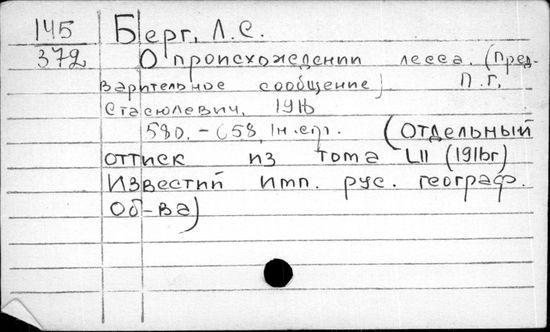 145
372
Берг, Л.С.
О происхождении лесса. (Пред-
варительное сообщение). П.г.
Стасюлевич, 1916
580.-658, 1н.стр. (Отдельный
оттиск из тома LII (1916г)
Известий имп. рус. географ.
об-ва)